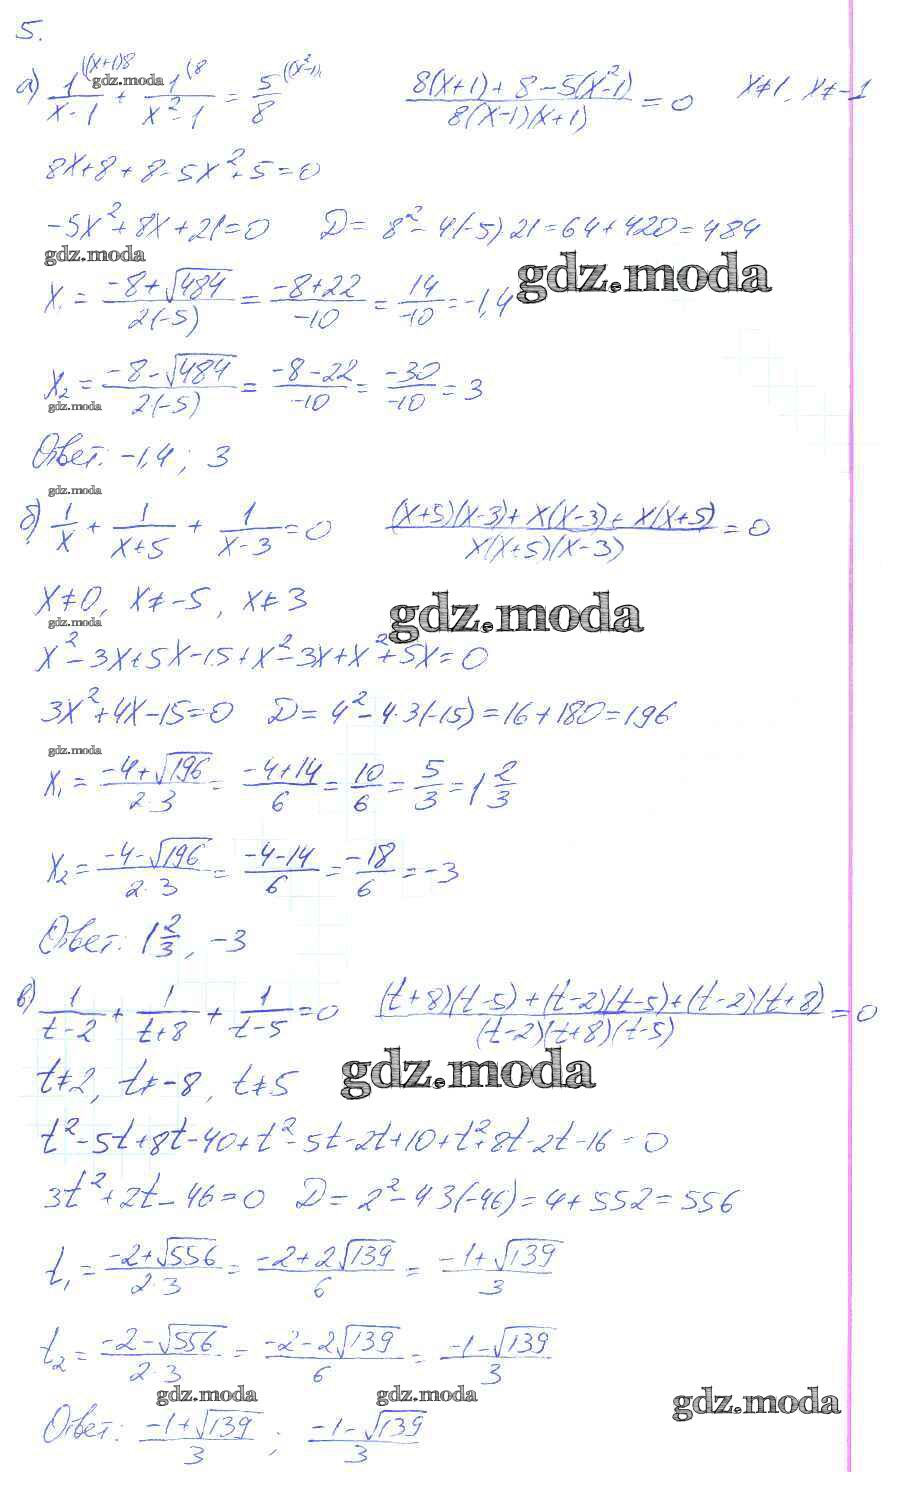 5.
а) 1/(x-1) ((x+1)8 + 1/(x²-1) (8 = 5/8 ((x²-1) (8(x+1)+8-5(x²-1))/(8(x-1)(x+1)) = 0 x≠1, x≠-1
gdz.moda
8x+8+8-5x²+5=0
-5x²+8x+21=0 D= 8²-4(-5)21=64+420=484
gdz.moda
gdz.moda
x₁ = (-8+√484)/(2(-5)) = (-8+22)/(-10) = 14/(-10) = -1,4
x₂ = (-8-√484)/(2(-5)) = (-8-22)/(-10) = (-30)/(-10) = 3
gdz.moda
Ответ: -1,4; 3
gdz.moda
б) 1/x + 1/(x+5) + 1/(x-3) = 0 ((x+5)(x-3)+x(x-3)+x(x+5))/(x(x+5)(x-3)) = 0
x≠0, x≠-5, x≠3
gdz.moda
gdz.moda
x²-3x+5x-15+x²-3x+x²+5x=0
3x²+4x-15=0 D=4²-4·3(-15)=16+180=196
gdz.moda
x₁ = (-4+√196)/(2·3) = (-4+14)/6 = 10/6 = 5/3 = 1 2/3
x₂ = (-4-√196)/(2·3) = (-4-14)/6 = -18/6 = -3
Ответ: 1 2/3, -3
в) 1/(t-2) + 1/(t+8) + 1/(t-5) = 0 ((t+8)(t-5)+(t-2)(t-5)+(t-2)(t+8))/((t-2)(t+8)(t-5)) = 0
t≠2, t≠-8, t≠5
gdz.moda
t²-5t+8t-40+t²-5t-2t+10+t²+8t-2t-16=0
3t²+2t-46=0 D=2²-4·3(-46)=4+552=556
t₁ = (-2+√556)/(2·3) = (-2+2√139)/6 = (-1+√139)/3
t₂ = (-2-√556)/(2·3) = (-2-2√139)/6 = (-1-√139)/3
gdz.moda gdz.moda gdz.moda
Ответ: (-1+√139)/3; (-1-√139)/3